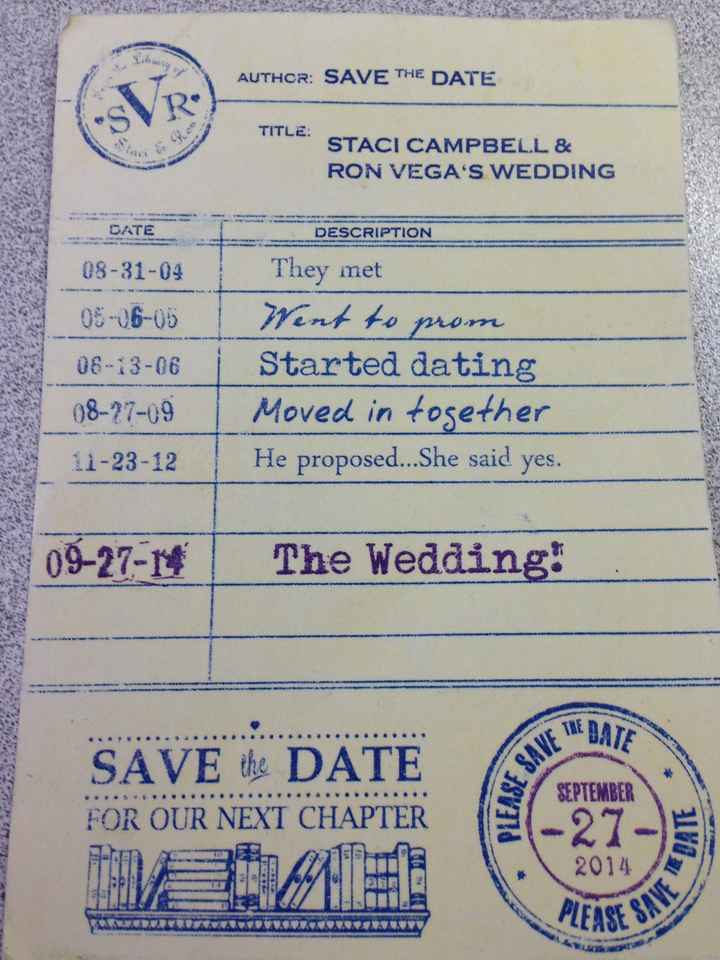 Library of
SVR
Staci & Ron
AUTHOR: SAVE THE DATE
TITLE: STACI CAMPBELL &
RON VEGA'S WEDDING
DATE DESCRIPTION
08-31-04 They met
05-06-05 Went to prom
06-13-06 Started dating
08-27-09 Moved in together
11-23-12 He proposed...She said yes.
09-27-14 The Wedding!
SAVE the DATE
FOR OUR NEXT CHAPTER
PLEASE SAVE THE DATE
SEPTEMBER
-27-
2014
PLEASE SAVE THE DATE